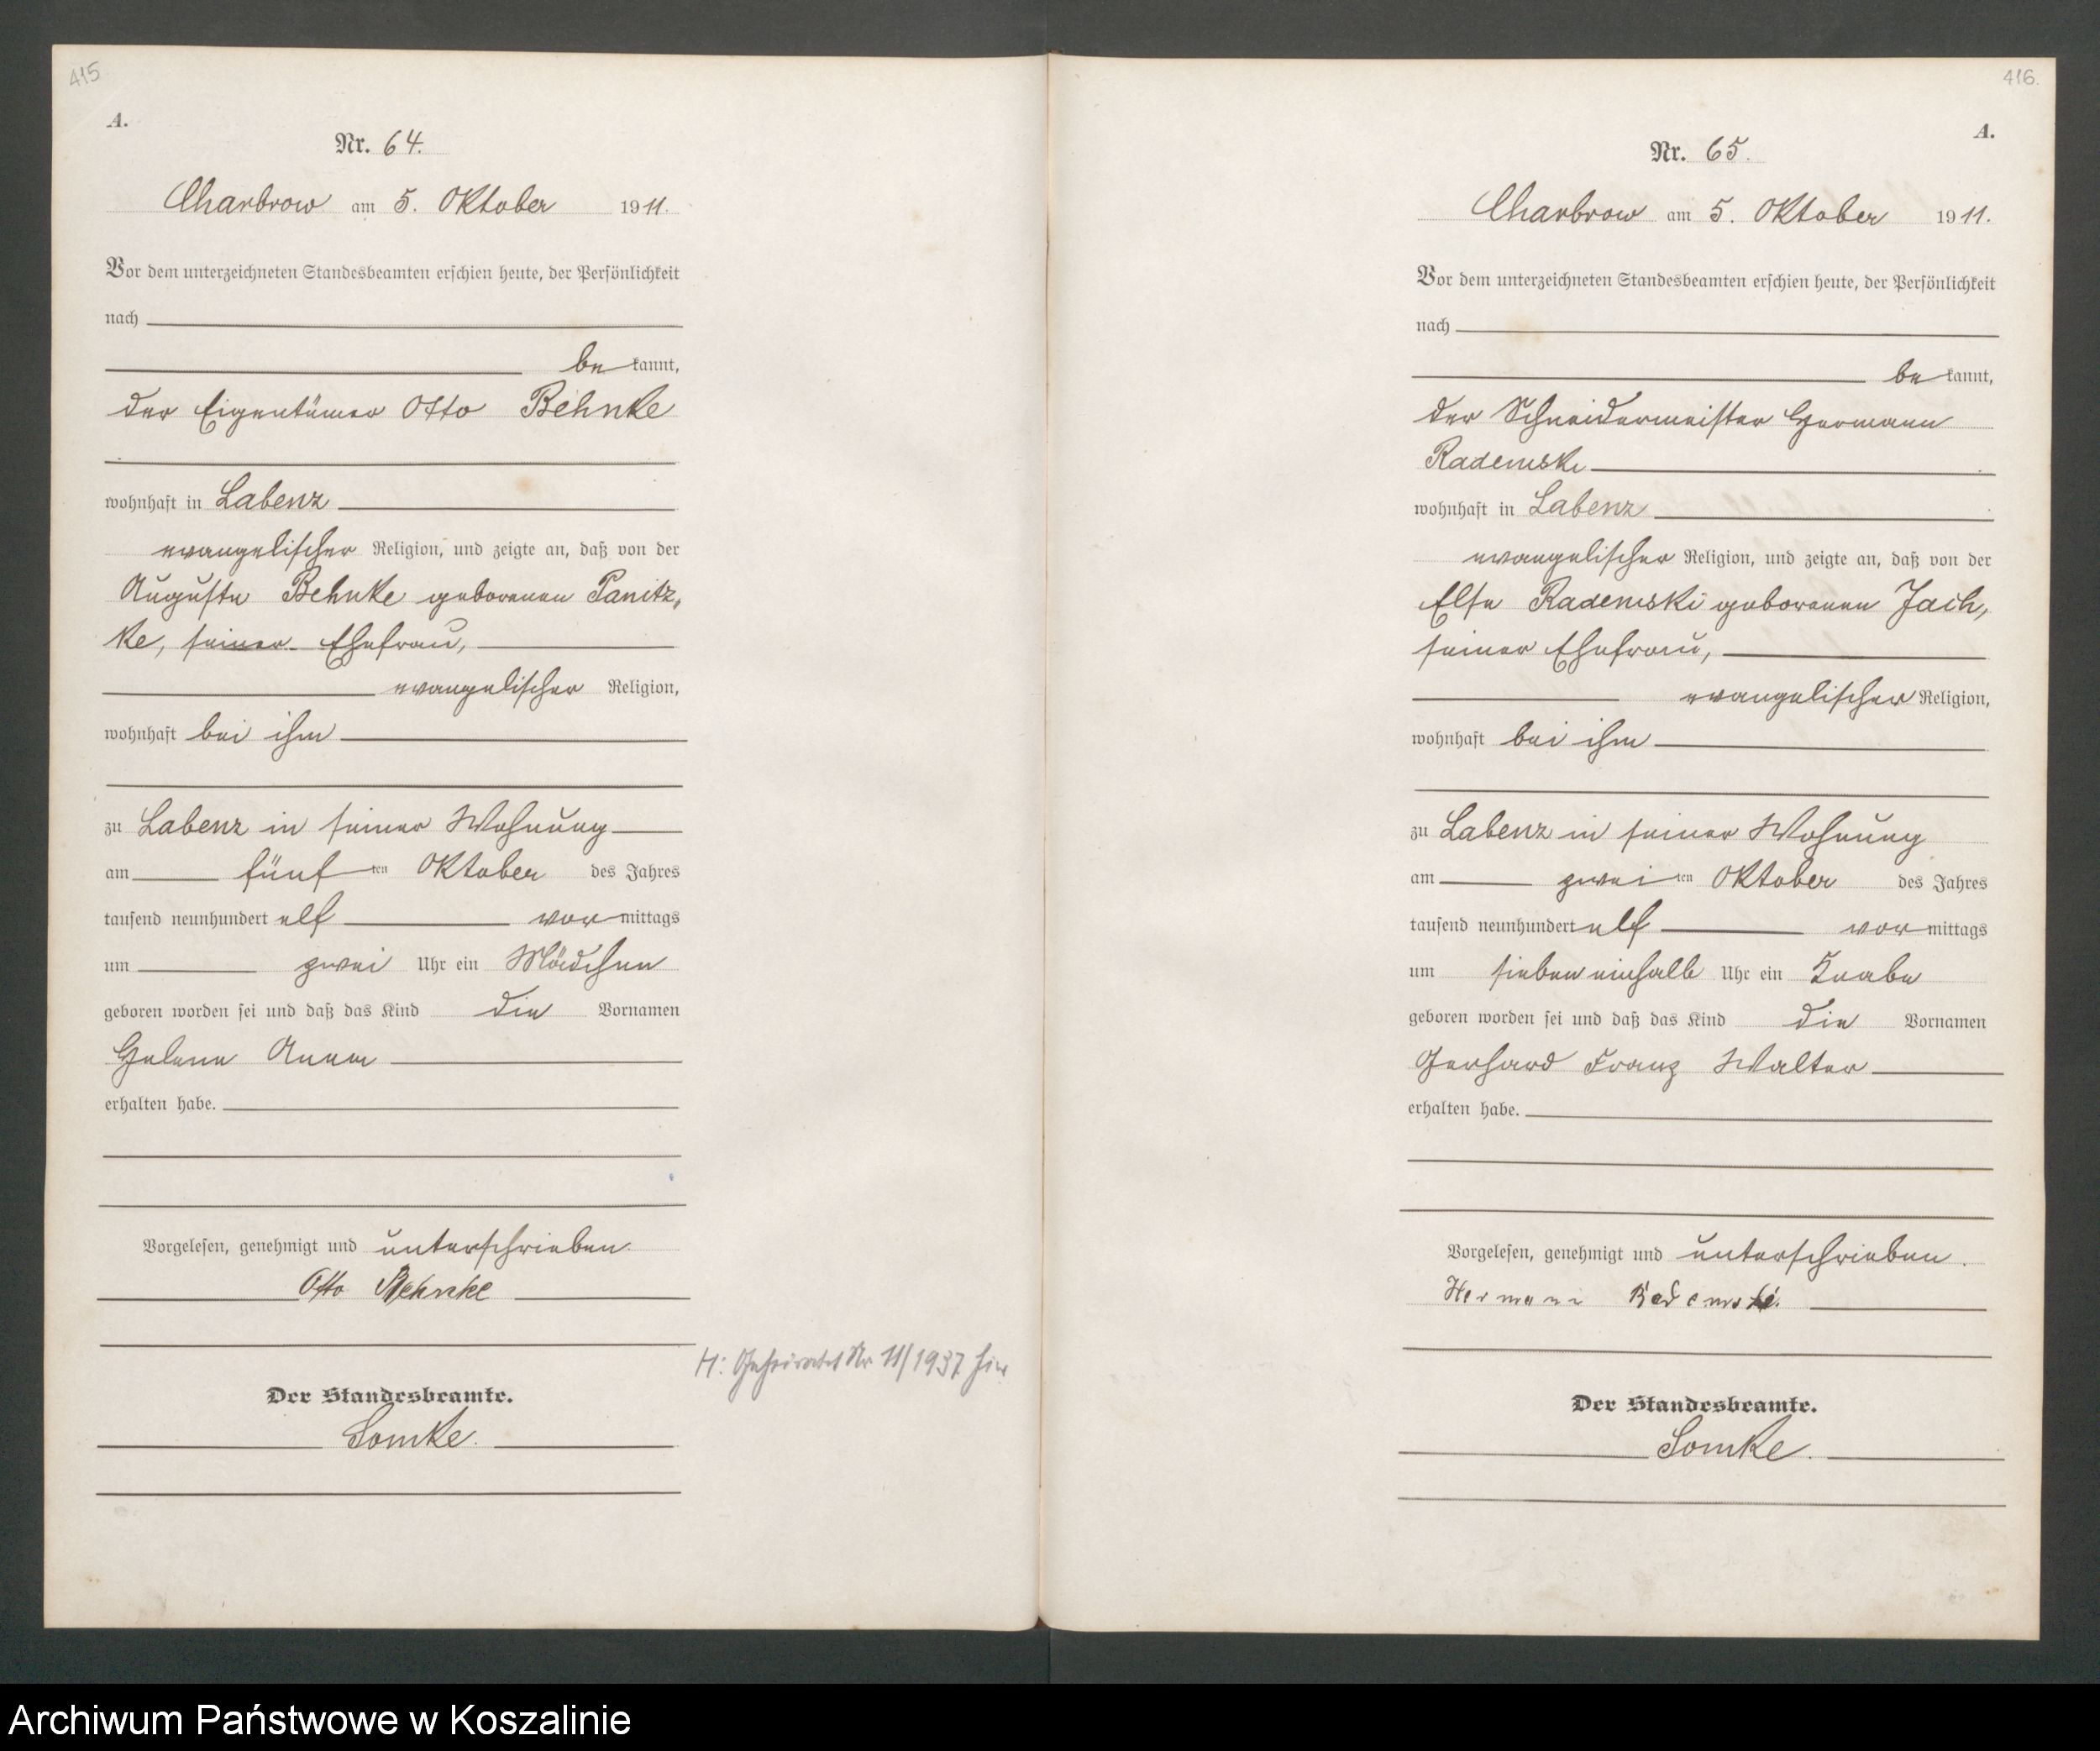 415
A.
Nr. 64.
Charbrow am 5. Oktober 1911.
Vor dem unterzeichneten Standesbeamten erschien heute, der Persönlichkeit
nach
be kannt,
der Eigentümer Otto Behnke
wohnhaft in Labenz
evangelischer Religion, und zeigte an, daß von der
Auguste Behnke geborenen Panitz„
ke, seiner Ehefrau,
evangelischer Religion,
wohnhaft bei ihm
zu Labenz in seiner Wohnung
am fünf ten Oktober des Jahres
tausend neunhundert elf vor mittags
um zwei Uhr ein Mädchen
geboren worden sei und daß das Kind die Vornamen
Helene Anna
erhalten habe.
Vorgelesen, genehmigt und unterschrieben.
Otto Behnke
H: Geheiratet Nr 11/1937 hier
Der Standesbeamte.
Somke.
416.
A.
Nr. 65.
Charbrow am 5. Oktober 1911.
Vor dem unterzeichneten Standesbeamten erschien heute, der Persönlichkeit
nach
be kannt,
der Schneidermeister Hermann
Rademski
wohnhaft in Labenz
evangelischer Religion, und zeigte an, daß von der
Else Rademski geborenen Jach,
seiner Ehefrau,
evangelischer Religion,
wohnhaft bei ihm
zu Labenz in seiner Wohnung
am zwei ten Oktober des Jahres
tausend neunhundert elf vor mittags
um sieben einhalb Uhr ein Knabe
geboren worden sei und daß das Kind die Vornamen
Gerhard Franz Walter
erhalten habe.
Vorgelesen, genehmigt und unterschrieben.
Hermann Rademski.
Der Standesbeamte.
Somke.
Archiwum Państwowe w Koszalinie